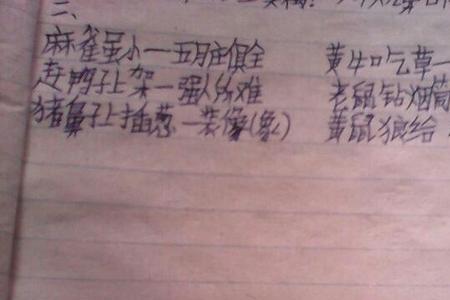 二、
麻雀虽小一五月庄俱全 黄牛吃草一
赶鸭子上架一强人所难 老鼠钻烟筒
猪鼻子上插葱一装像(象) 黄鼠狼给